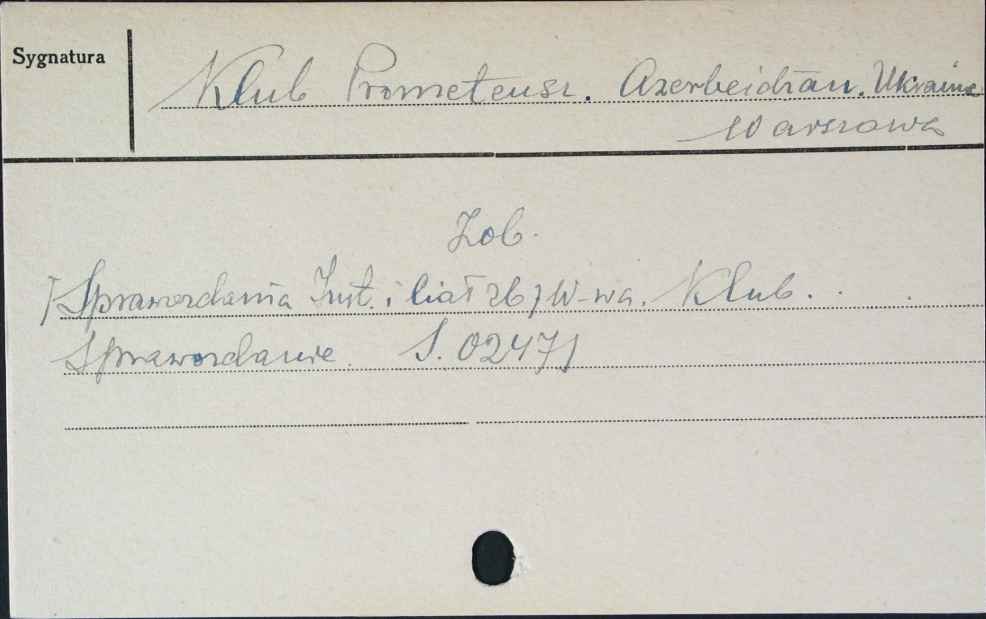 Sygnatura
Klub Prometeusz. Azerbeidżan. Ukraina
Warszawa
Zob.
[Sprawozdania Inst. i ciał zb] W-wa. Klub. . .
Sprawozdanie. S. 02471